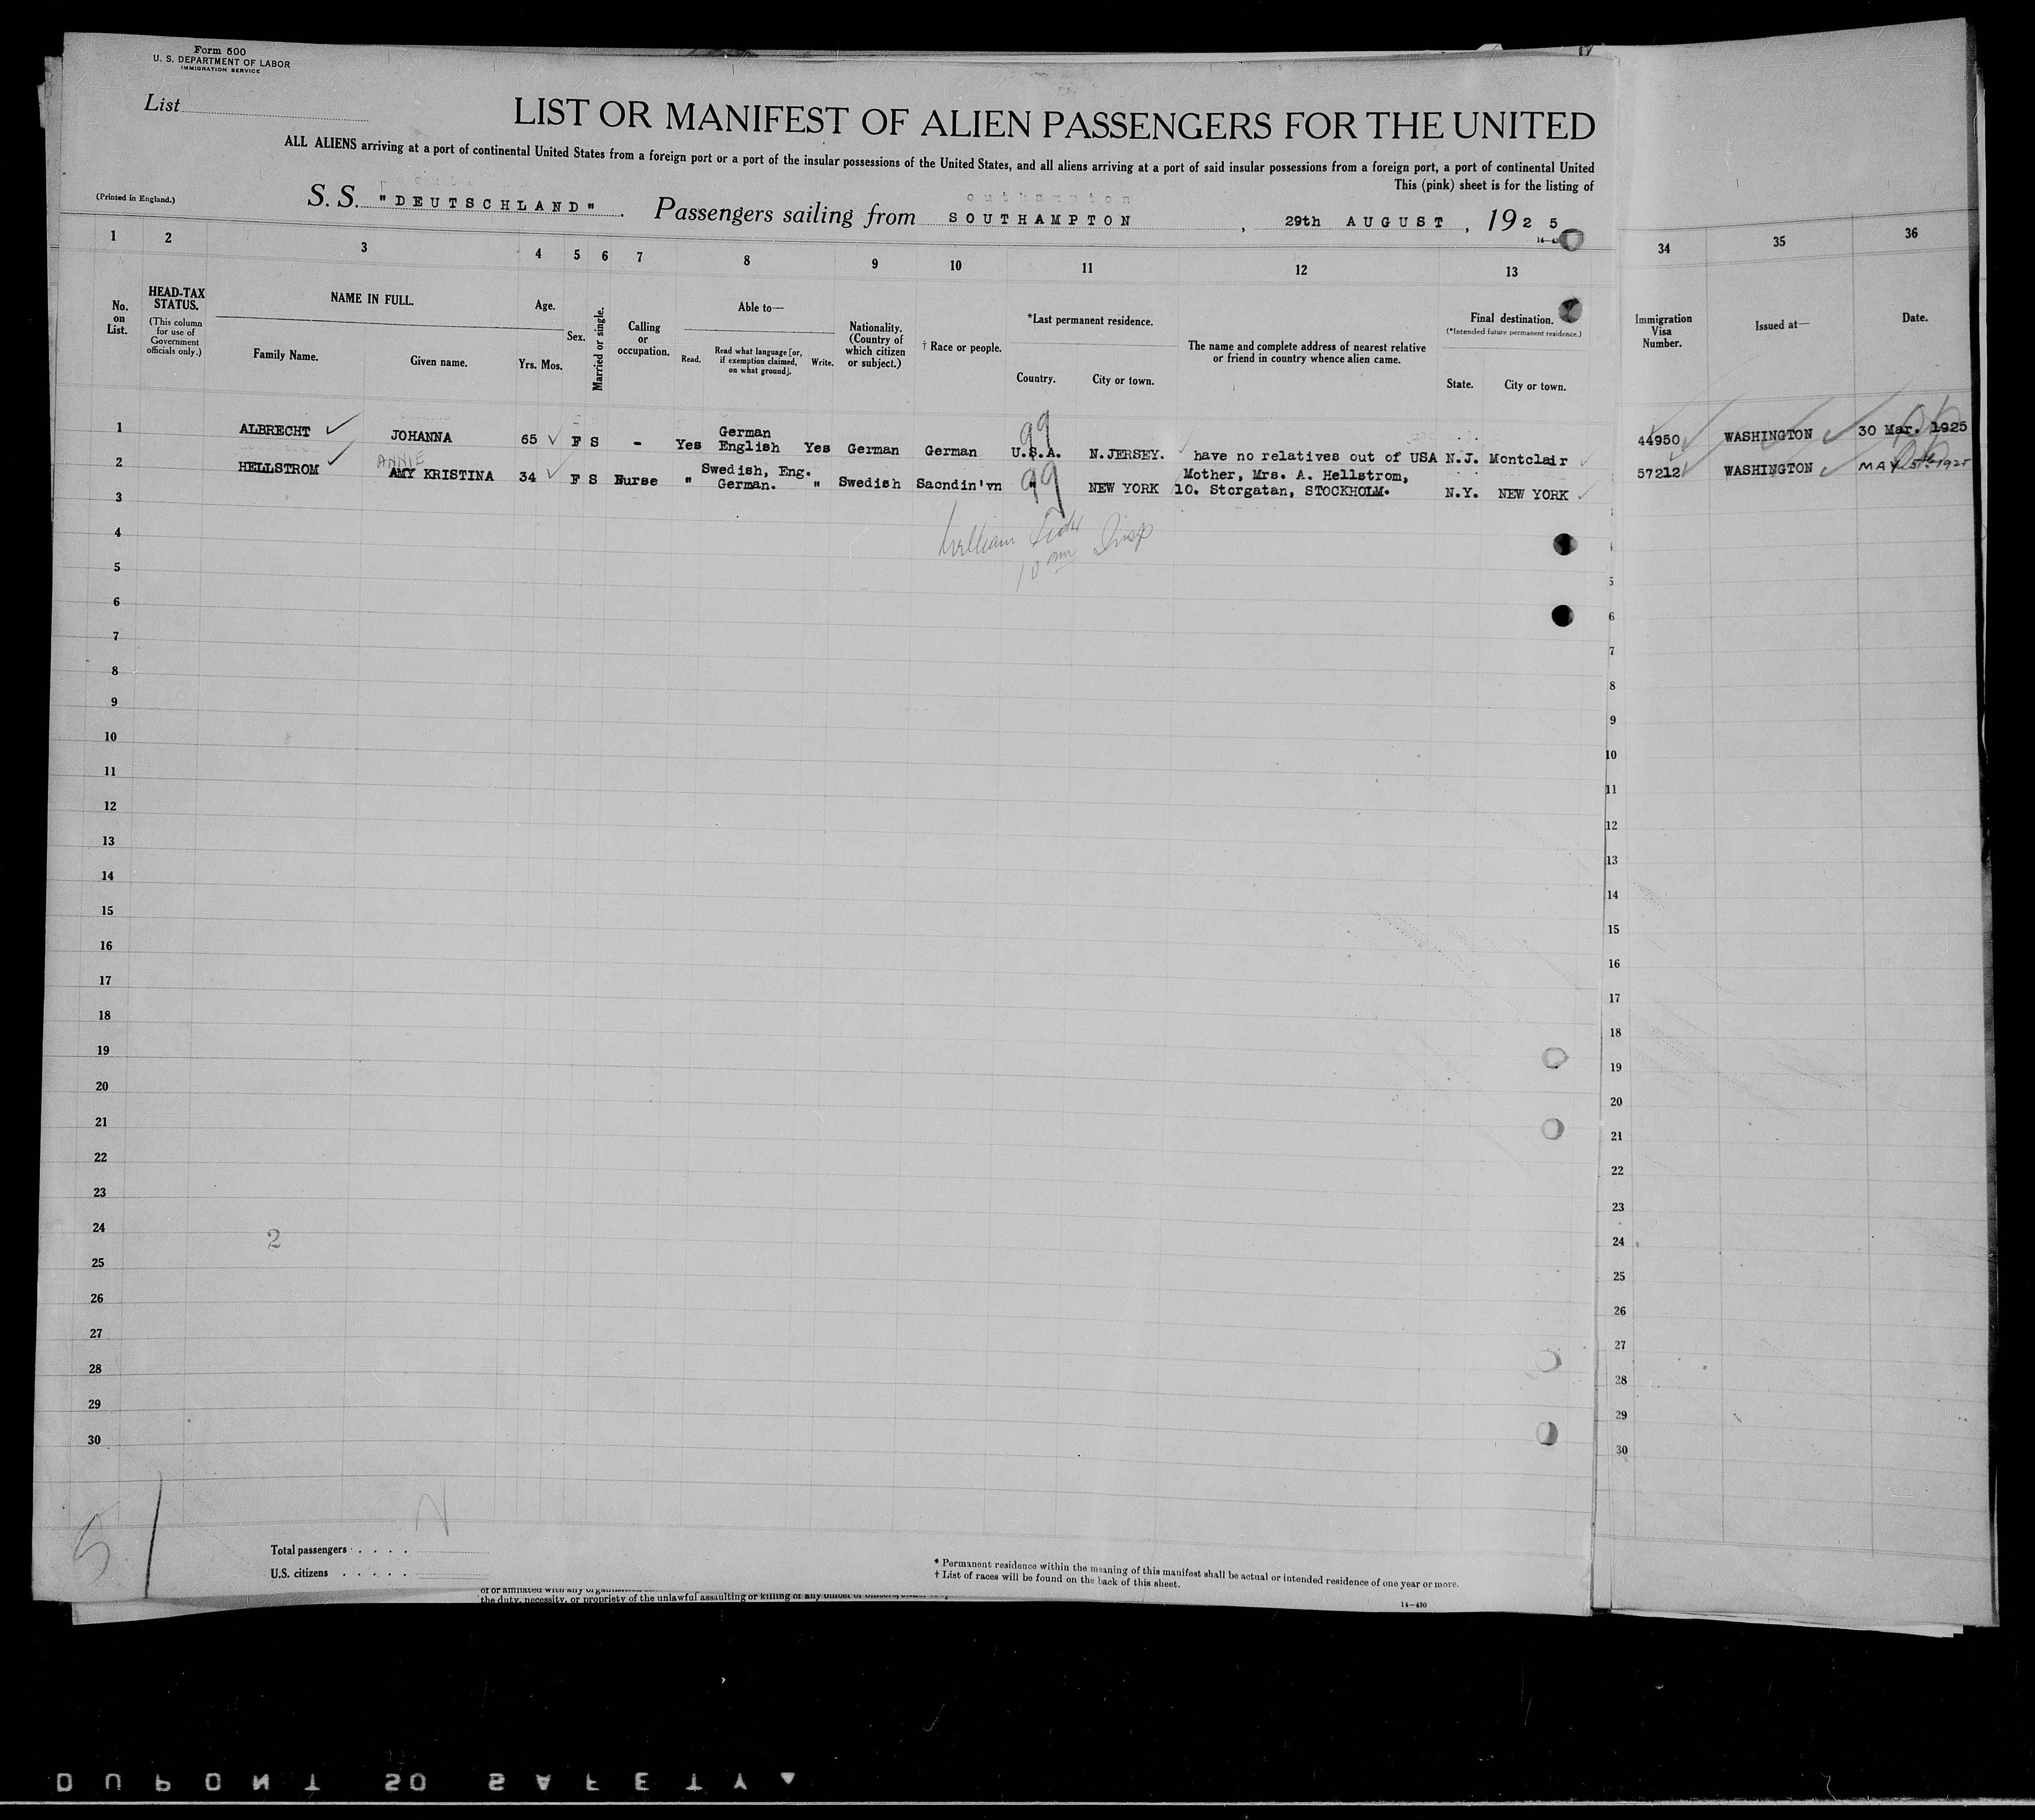 Form 500
U. S. DEPARTMENT OF LABOR
IMMIGRATION SERVICE
List
LIST OR MANIFEST OF ALIEN PASSENGERS FOR THE UNITED
ALL ALIENS arriving at a port of continental United States from a foreign port or a port of the insular possessions of the United States, and all aliens arriving at a port of said insular possessions from a foreign port, a port of continental United
This (pink) sheet is for the listing of
(Printed in England.)
S. S. "DEUTSCHLAND". Passengers sailing from SOUTHAMPTON, 29th AUGUST, 1925
1 2 3 4 5 6 7 8 9 10 11 12 13 34 35 36
No. on List.
HEAD-TAX STATUS.
(This column for use of Government officials only.)
NAME IN FULL.
Family Name. Given name.
Age.
Yrs. Mos.
Sex.
Married or single.
Calling or occupation.
Able to—
Read. Read what language [or, if exemption claimed, on what ground]. Write.
Nationality. (Country of which citizen or subject.)
† Race or people.
*Last permanent residence.
Country. City or town.
The name and complete address of nearest relative or friend in country whence alien came.
Final destination.
(*Intended future permanent residence.)
State. City or town.
Immigration Visa Number.
Issued at—
Date.
1 ALBRECHT JOHANNA 65 F S - Yes German English Yes German German U.S.A. N.JERSEY. have no relatives out of USA N.J. Montclair 44950 WASHINGTON 30 Mar. 1925
99
ANNIE
2 HELLSTROM AMY KRISTINA 34 F S Nurse " Swedish, Eng. German. " Swedish Sacndin'vn " NEW YORK Mother, Mrs. A. Hellstrom, 10. Storgatan, STOCKHOLM. N.Y. NEW YORK 57212 WASHINGTON MAY 5th 1925
99
3
William Insp
4
5 5
6 6
7 7
8 8
9 9
10 10
11 11
12 12
13 13
14 14
15 15
16 16
17 17
18 18
19 19
20 20
21 21
22 22
23 23
24 2 24
25 25
26 26
27 27
28 28
29 29
30 30
5
N
Total passengers
U.S. citizens
* Permanent residence within the meaning of this manifest shall be actual or intended residence of one year or more.
† List of races will be found on the back of this sheet.
14—430
the duty, necessity, or propriety of the unlawful assaulting or killing of any officer
DUPONT SO SAFETY